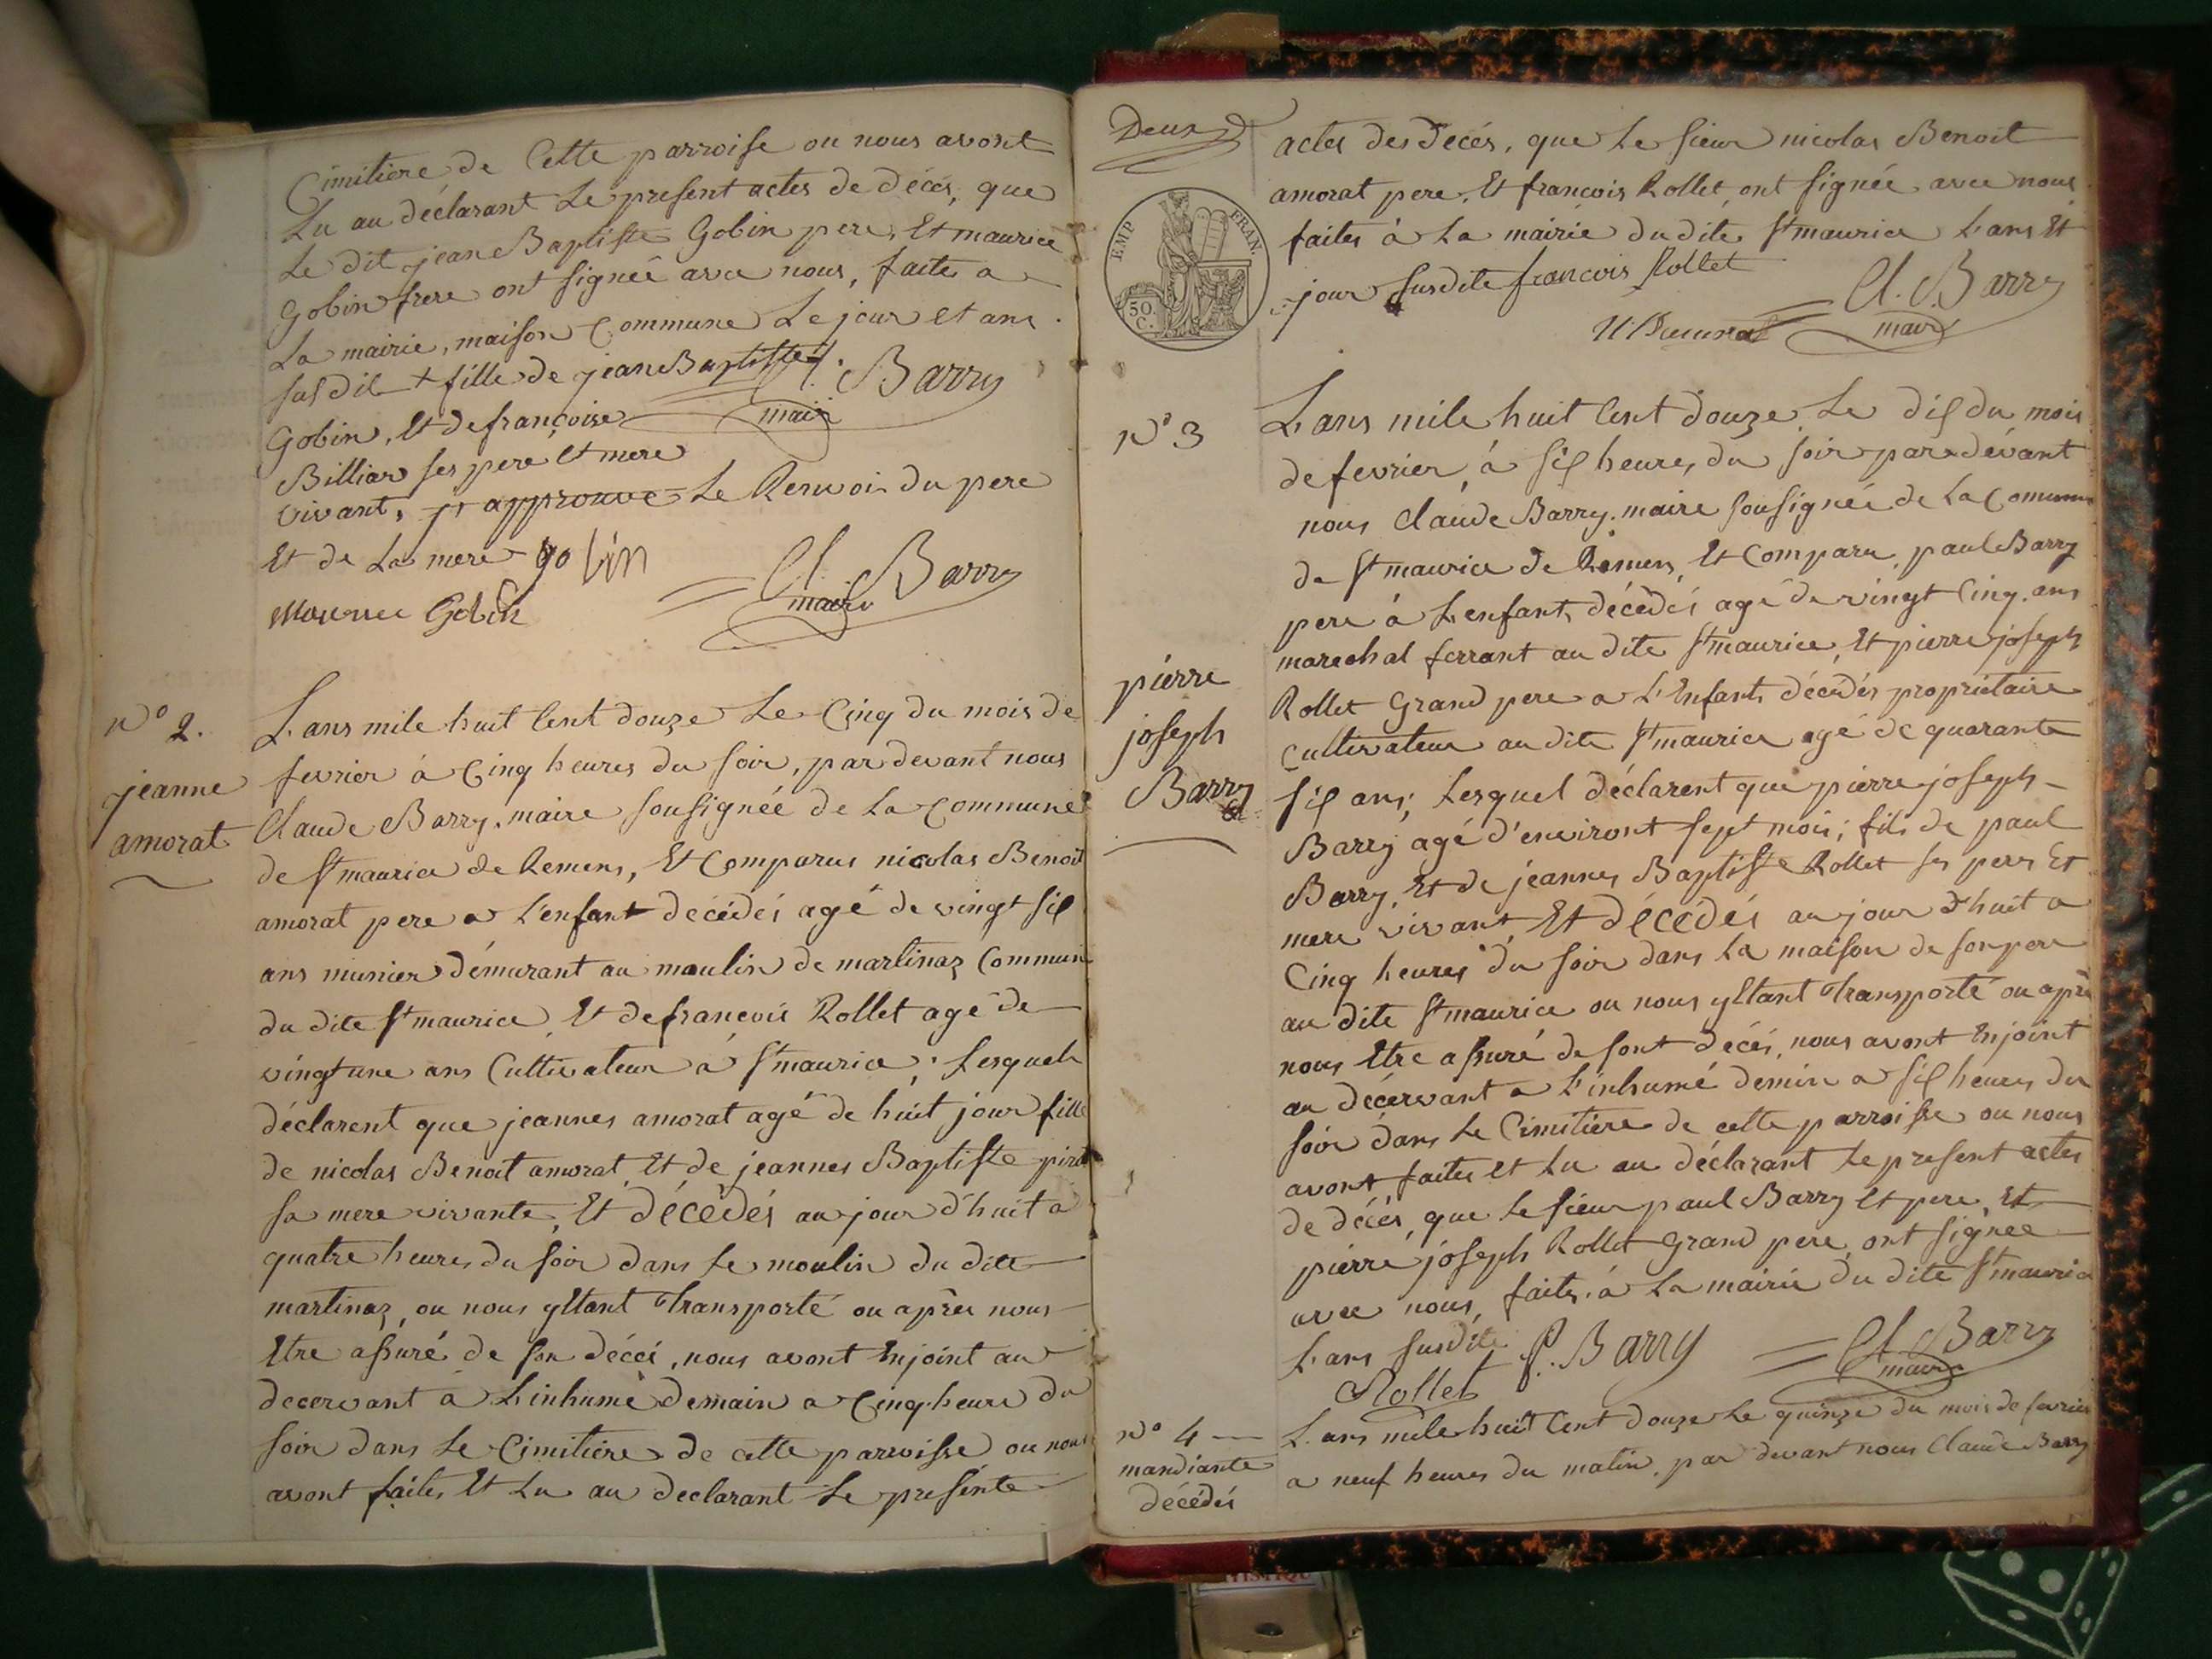 Cimitiere de Cette parroisse ou nous avont
Lu au déclarant Le present actes de décés, que
Le dit jean Baptiste Gobin pere, Et maurice
Gobin frere ont signée avec nous, faite a
La mairie, maison Commune Le jour et ans
susdit + fille de jean Baptiste
Cl. Barry
maire
Gobin, Et de françoise
Billiar ses pere et mere
vivant, approuve Le Renvoi du pere
Et de La mere gobin
Maurice Gobin
Cl. Barry
maire
N° 2.
jeanne
amorat
L'ans mile huit Cent douze Le Cinq du mois de
fevrier à Cinq heures du soir, par devant nous
Claude Barry, maire sousignée de La Commune
de St maurice de Remens, Et Comparus nicolas Benoit
amorat pere a L'enfant décédés agé de vingt six
ans munier démurant au moulin de martinaz Commune
du dite St maurice, Et de francois Rollet agé de
vingt une ans Cultivateur à St maurice; Lesquels
déclarent que jeannes amorat agé de huit jour fille
de nicolas Benoit amorat, Et de jeannes Baptiste
sa mere vivante, Et décédés au jour d'huit a
quatre heures du soir dans Le moulin du dite
martinaz, ou nous yEtant Transporté ou aprés nous
Etre assuré de son décés, nous avont Enjoint au
decervant à L'inhumé demain a Cinq heure du
soir dans Le Cimitiere de cette parroisse ou nous
avont faites Et Lu au declarant Le presente
Deux
EMP FRAN.
50 C.
actes des décés, que Le sieur nicolas Benoit
amorat pere, Et francois Rollet, ont signée avec nous
faites à La mairie du dite St maurice L'ans Et
jour susdite francois Rollet
Cl. Barry
maire
N° 3
pierre
joseph
Barry
L'ans mile huit Cent douze, Le dix du mois
de fevrier, à six heures du soir par devant
nous Claude Barry, maire sousignée de La Commune
de St maurice de Remens, Et Comparu, paul Barry
pere à L'enfant décédés agé de vingt Cinq ans
marechal ferrant au dite St maurice, Et pierre joseph
Rollet Grand pere a L'Enfant décédés propriétaire
Cultivateur au dite St maurice agé de quarante
six ans; Lesquel déclarent que pierre joseph
Barry agé d'environt sept mois; fils de paul
Barry, Et de jeannes Baptiste Rollet ses pere Et
mere vivant, Et décédés au jour d'huit a
Cinq heures du soir dans La maison de son pere
au dite St maurice ou nous yEtant Transporté ou aprés
nous Etre assuré de sont décés, nous avont Enjoint
au décervant a L'inhumé demin a six heures du
soir dans Le Cimitiere de cette parroisse ou nous
avont faites et Lu au déclarant Le present actes
de décés, que Le sieur paul Barry Et pere, Et
pierre joseph Rollet Grand pere, ont signée
avec nous, faites à La mairie du dite St maurice
L'ans susdite P. Barry
Cl. Barry
maire
Rollet
N° 4
mandiante
décédés
L'ans mile huit Cent douze Le quinze du mois de fevrier
a neuf heures du matin, par devant nous Claude Barry